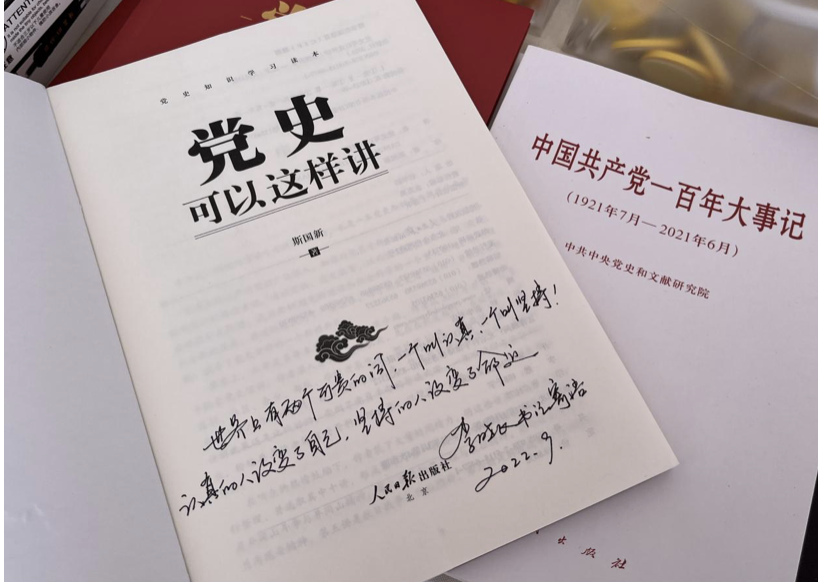 党史知识学习读本
党史
可以这样讲
斯国新
著
世界上有两个可贵的词，一个叫认真，一个叫坚持！
认真的人改变了自己，坚持的人改变了命运
书记寄语
2022.9.
人民日报出版社
北京
中国共产党一百年大事记
（1921年7月—2021年6月）
中共中央党史和文献研究院
出版社
ATTENT